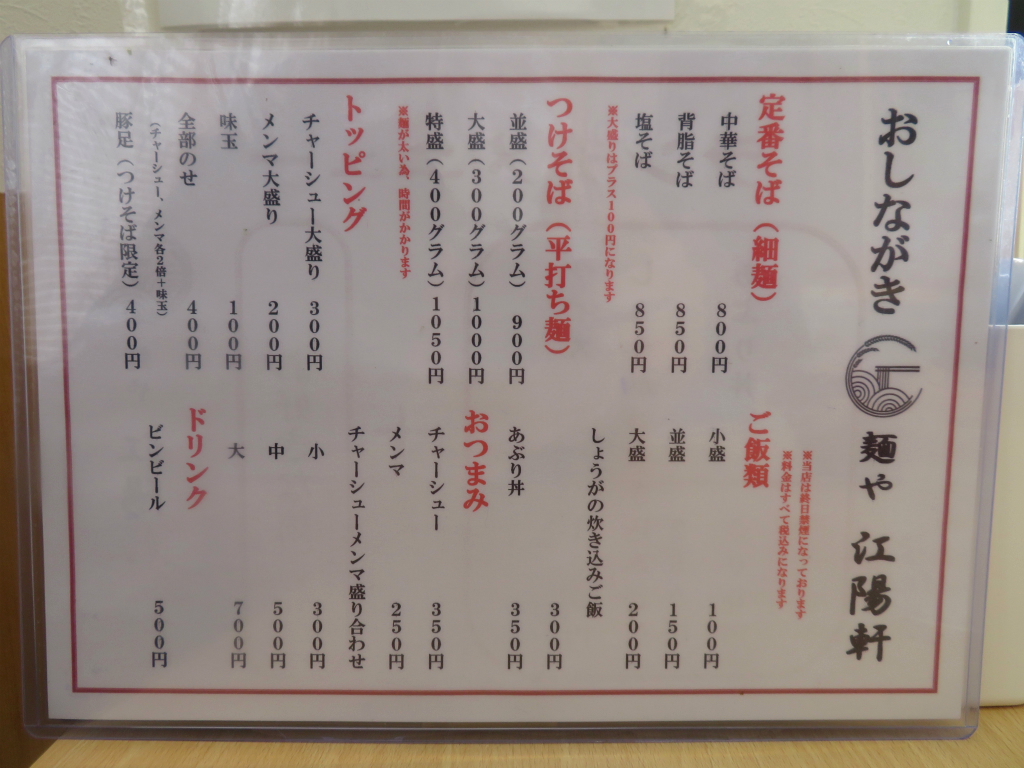 おしながき 麺や 江陽軒
※当店は終日禁煙になっております
※料金はすべて税込みになります
定番そば（細麺）
中華そば 800円
背脂そば 850円
塩そば 850円
※大盛りはプラス100円になります
つけそば（平打ち麺）
並盛（200グラム） 900円
大盛（300グラム）1000円
特盛（400グラム）1050円
※麺が太い為、時間がかかります
トッピング
チャーシュー大盛り 300円
メンマ大盛り 200円
味玉 100円
全部のせ 400円
（チャーシュー、メンマ各2倍＋味玉）
豚足（つけそば限定）400円
ご飯類
小盛 100円
並盛 150円
大盛 200円
しょうがの炊き込みご飯
300円
あぶり丼 350円
おつまみ
チャーシュー 350円
メンマ 250円
チャーシューメンマ盛り合わせ
小 300円
中 500円
大 700円
ドリンク
ビンビール 500円